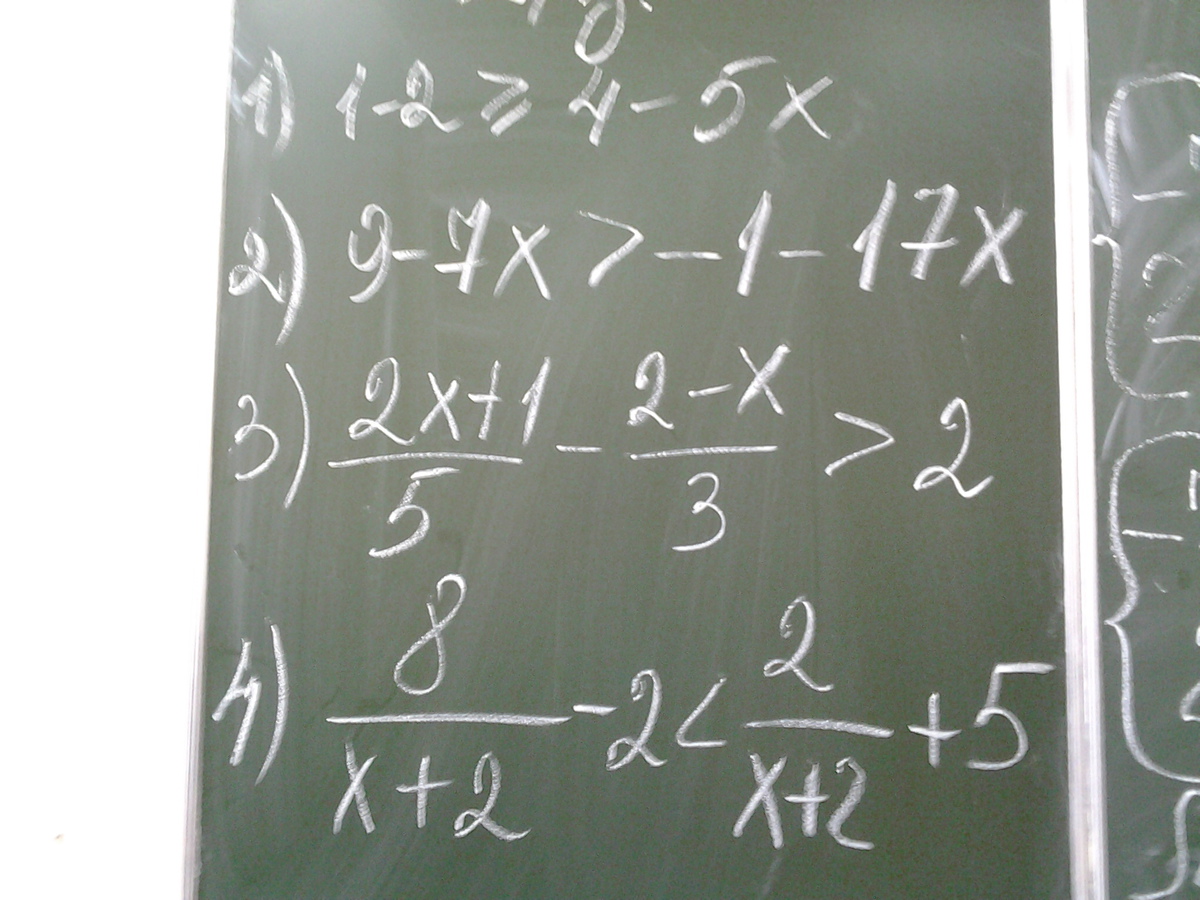 1) 1-2 ≥ 4 - 5x
2) 9 - 7x > -1 - 17x
3) (2x+1)/5 - (2-x)/3 > 2
4) 8/(x+2) - 2 < 2/(x+2) + 5